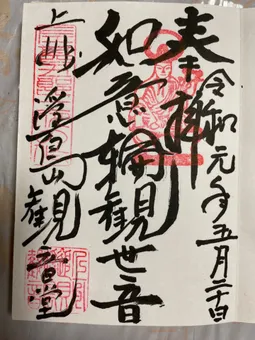 奉拝
令和元年五月二十日
如意輪観世音
上州
浮島山観音堂